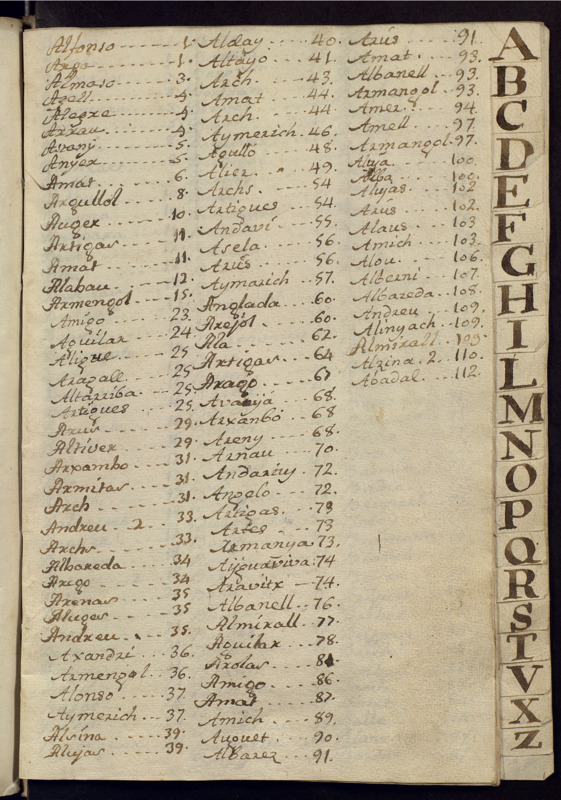 Alfonso 1.
Argo 1.
Almaso 3.
Agell 4.
Alegre 4.
Arnau 4.
Avany 5.
Anyer 5.
Amat 6.
Argullol 8.
Auger 10.
Artigas 11.
Amat 11.
Alabau 12.
Armengol 15.
Amigo 23.
Aguilar 24.
Aligue 25
Aragall 25
Altarriba 25.
Artigues 25.
Arus 29.
Altiver 29.
Arxambo 31.
Armitas 31.
Arch 31.
Andreu 2 33.
Archs 33.
Albareda 34
Arigo 34
Arenas 35
Aluges 35
Andreu 35.
Axandri 36.
Armengol 36.
Alonso 37.
Aymerich 37.
Alsina 39.
Alujas 39.
Alday 40.
Altayo 41.
Arch 43.
Amat 44.
Arch 44.
Aymerich 46.
Agulló 48.
Alier 49.
Archs 54
Artigues 54.
Andavi 55.
Asela 56.
Arús 56.
Aymarich 57.
Anglada 60.
Arejol 60.
Ala 62.
Artigas 64
Arago 67
Avanja 68.
Arxanbó 68
Areny 68.
Arnau 70.
Andariy 72.
Angelo 72.
Artigas 73
Artes 73
Armanya 73.
Ayguaviva 74
Aravitx 74.
Albanell 76.
Almirall 77.
Aguilar 78.
Arolas 81.
Amigo 86.
Amat 87.
Amich 89.
Auguet 90.
Albarez 91.
Arús 91.
Amat 93.
Albanell 93.
Armangol 93.
Amer 94
Amell 97
Armangol 97.
Aluja 100.
Alba 100.
Alujas 102
Arús 102.
Alaus 103
Amich 103.
Alou 106.
Alberni 107.
Albareda 108.
Andreu 109.
Alinyach 109.
Almirall 109
Alzina 2. 110.
Abadal 112.
A
B
C
D
E
F
G
H
I
L
M
N
O
P
Q
R
S
T
V
X
Z